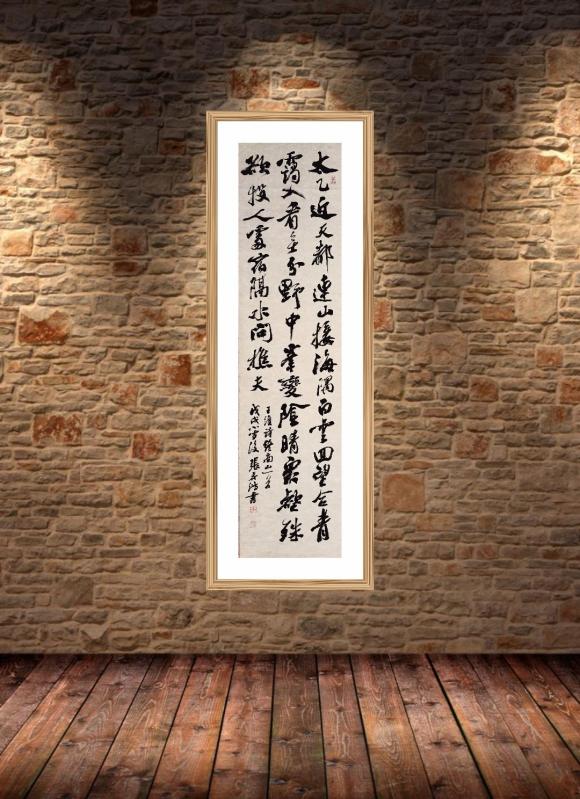 太乙近天都連山接海隅白雲回望合青
靄入看無分野中峯變陰晴衆壑殊
欲投人處宿隔水問樵夫
王維詩終南山
戊戌 張 書